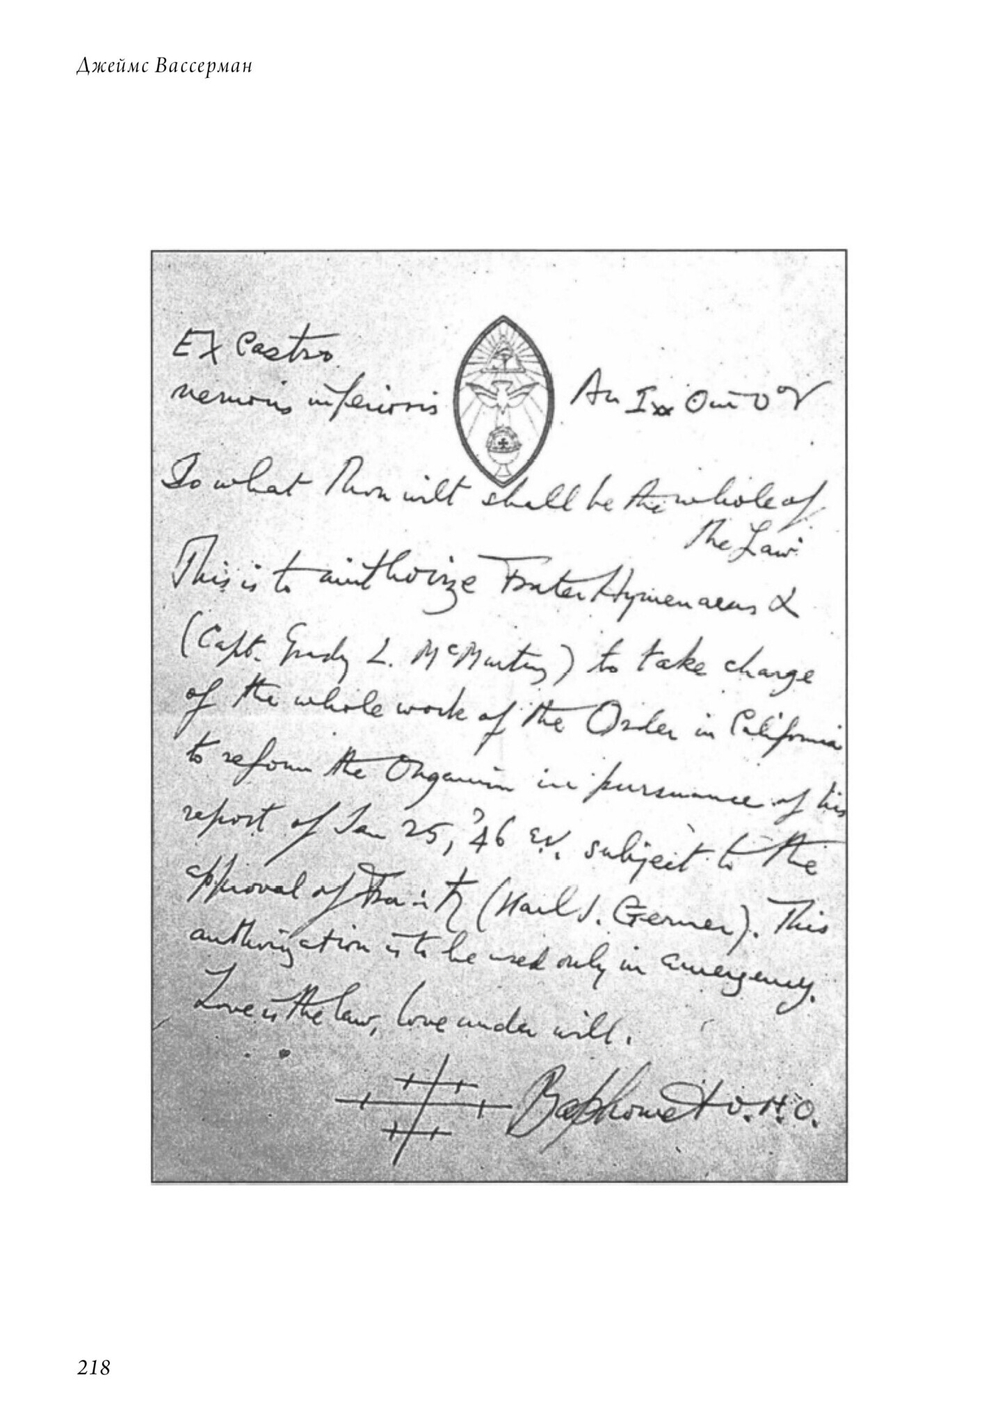 Джеймс Вассерман
Ex Castro
nemoris inferioris
An Ixx ☉ in 0° ♈
Do what Thou wilt shall be the whole of
the Law.
This is to authorize Frater Hymenaeus α
(Capt. Grady L. McMurtry) to take charge
of the whole work of the Order in California
to reform the Organism in pursuance of his
report of Jan 25, '46 e.v. subject to the
approval of Fra ♄ (Karl J. Germer). This
authorization is to be used only in emergency.
Love is the law, love under will.
Baphomet O.H.O.
218